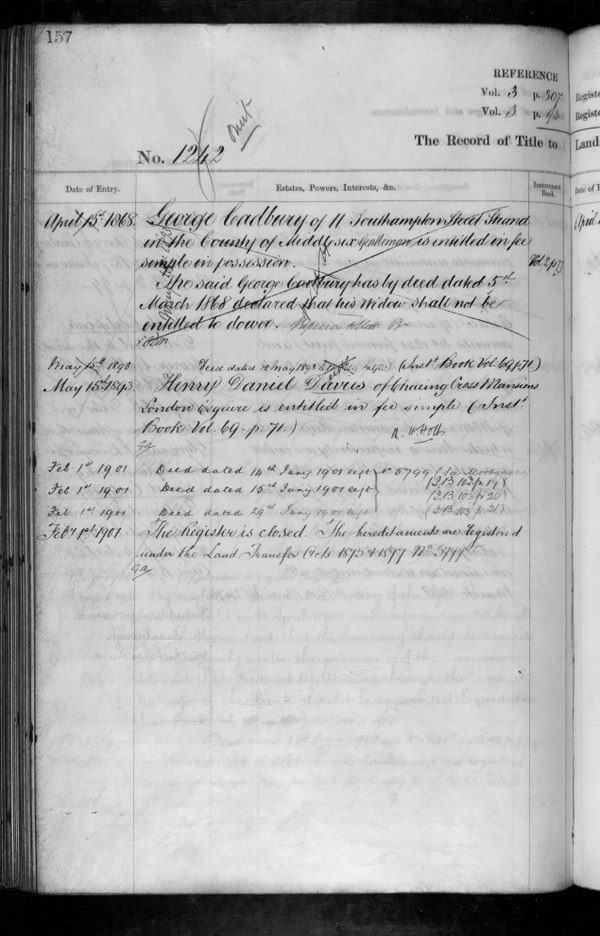 157
REFERENCE
Vol. 3 p. 307
Vol. 3 p. 93
The Record of Title to
No. 1242
Date of Entry.
Estates, Powers, Interests, &c.
Instrument Book.
April 15th 1868.
George Cadbury of 11 Southampton Street Strand
in the County of Middlesex Gentleman is entitled in fee
simple in possession.
The said George Cadbury has by deed dated 5th
March 1868 declared that his Widow shall not be
entitled to dower.
May 15th 1893
Deed dated 12 May 1893 (Inst. Book Vol. 69 p. 71)
May 15th 1893
Henry Daniel Davies of Charing Cross Mansions
London Esquire is entitled in fee simple (Inst.
Book Vol. 69. p. 71.)
R. W. Holt
Feb 1st 1901
Deed dated 14th Jany 1901 No 5799
(I.B. 103 p. 19)
Feb 1st 1901
Deed dated 15th Jany 1901
(I.B. 103 p. 20)
Feb 1st 1901
Deed dated 29th Jany 1901
(I.B. 103 p. 21)
Feby 1st 1901
The Register is closed. The hereditaments are registered
under the Land Transfer Acts 1875 & 1897 No 5799
Registe
Registe
Land
Date of E
April